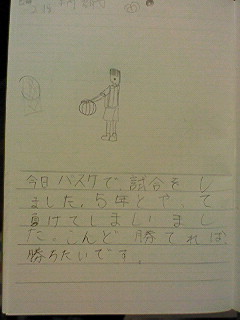 今日バスケで、試合をし
ました。5年とやって
負けてしまいまし
た。こんど勝てれば
勝ちたいです。